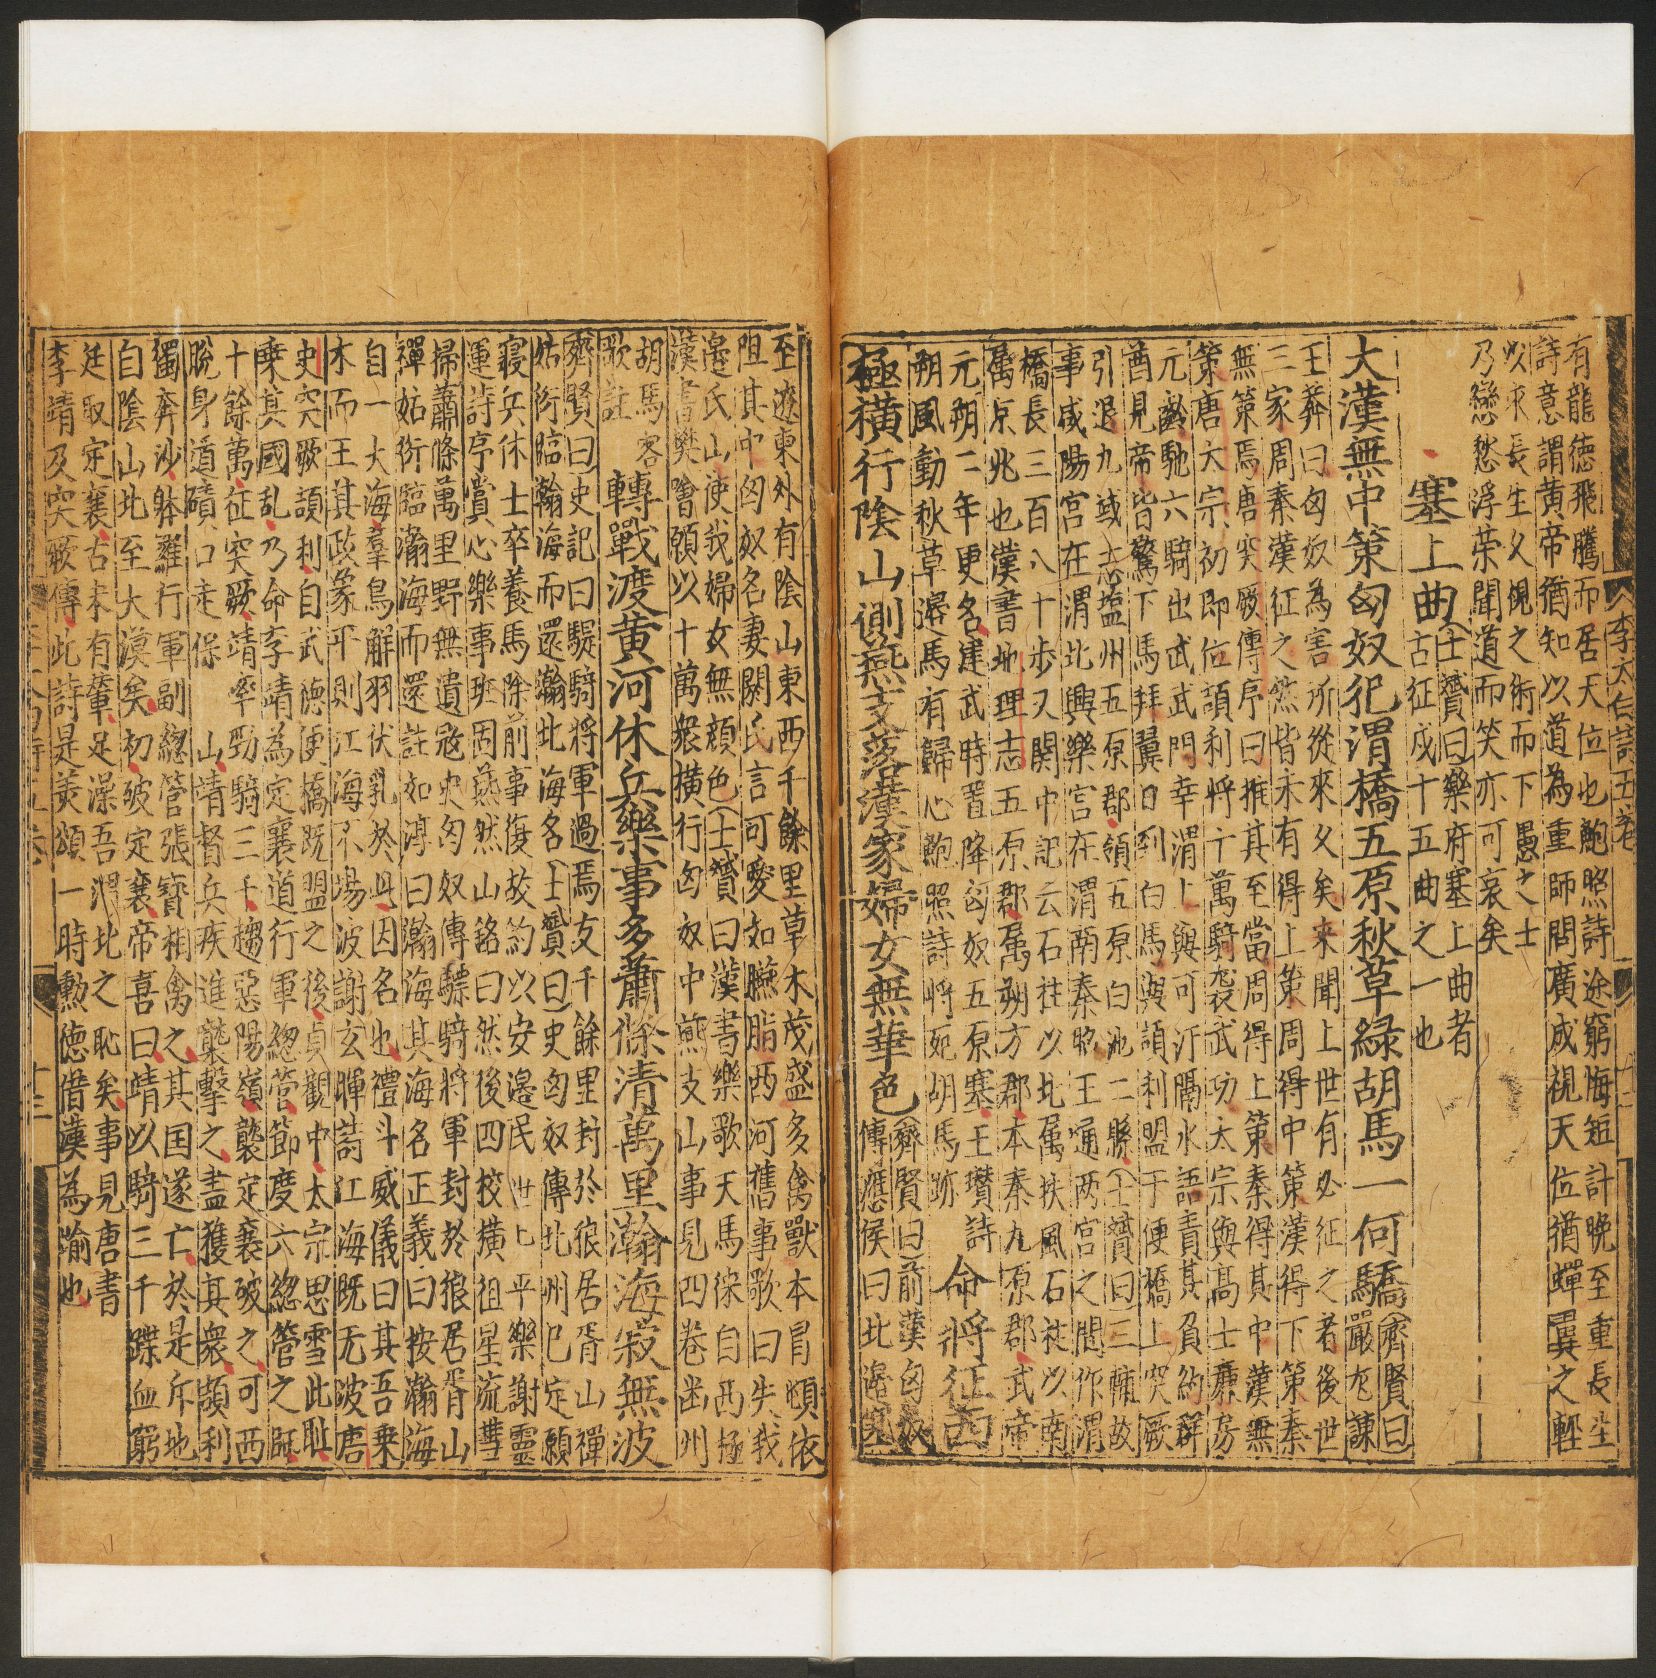 有龍德飛騰而居天位也鮑照詩途窮悔短計晚至重長生
詩意謂黃帝猶知以道為重師問廣成視天位猶蟬翼之輕
以求長生久視之術而下愚之士
乃戀愁浮榮聞道而笑亦可哀矣
塞上曲
士贇曰樂府塞上曲者
古征戍十五曲之一也
大漢無中策匈奴犯渭橋五原秋草綠胡馬一何驕
齊賢曰
嚴尤諫
王莽曰匈奴為害所從來久矣未聞上世有必征之者後世
三家周秦漢征之然皆未有得上策周得中策漢得下策秦
無策焉唐突厥傳序曰推其至當周得上策秦得其中漢無
策唐太宗初即位頡利將十萬騎襲武功太宗與高士廉房
元齡馳六騎出武武門幸渭上與可汗隔水語責其負約群
酋見帝皆驚下馬拜翼日到白馬與頡利盟于便橋上突厥
引退九域志塩州五原郡領五原白池二縣士贇曰三輔故
事咸陽宮在渭北興樂宮在渭南秦昭王通兩宮之間作渭
橋長三百八十步又関中記云石柱以北属扶風石柱以南
屬京兆也漢書地理志五原郡属朔方郡本秦九原郡武帝
元朔二年更名建武時置降匈奴五原塞王瓚詩
朔風動秋草邊馬有歸心鮑照詩將死胡馬跡
命將征西
極橫行陰山側燕支落漢家婦女無華色
齊賢曰前漢匈奴
傳應侯曰北邊塞
至遼東外有陰山東西千餘里草木茂盛多禽獸本冒頓依
阻其中匈奴名妻閼氏言可愛如臙脂西河舊事歌曰失我
燕氏山使我婦女無顏色士贇曰漢書樂歌天馬徠自西極
漢書樊噲願以十萬衆橫行匈奴中燕支山事見四卷幽州
胡馬客
歌註
轉戰渡黃河休兵樂事多蕭條清萬里瀚海寂無波
齊賢曰史記曰驃騎將軍過焉支千餘里封於狼居胥山禪
姑衍臨瀚海而還瀚北海名士贇曰史匈奴傳北州已定願
寢兵休士卒養馬除前事復故約以安邊民世世平樂謝靈
運詩序賞心樂事班固燕然山銘曰然後四校橫徂星流彗
掃蕭條萬里野無遺寇史匈奴傳驃騎將軍封於狼居胥山
禪姑衍臨瀚海而還註如淳曰瀚海其海名正義曰按瀚海
自一大海羣鳥解羽伏乳於此因名也禮斗威儀曰其吾乗
木而王其政象平則江海不揚波謝玄暉詩江海既无波唐
史突厥頡利自武德便橋既盟之後貞觀中太宗思雪此耻
乗其國乱乃命李靖為定襄道行軍總管節度六總管之師
十餘萬征突厥靖率勁騎三千趨惡陽嶺襲定襄破之可西
脫身遁磧口走保 山靖督兵疾進襲擊之盡獲其衆頡利
獨奔沙鉢羅行軍副總管張寶相禽之其国遂亡於是斥地
自陰山北至大漠矣初破定襄帝喜曰靖以騎三千蹀血虜
廷取定襄古未有輩足澡吾渭北之恥矣事見唐書
李靖及突厥傳此詩是美頌一時勳德借漢為喻也
李太白詩五卷
十三